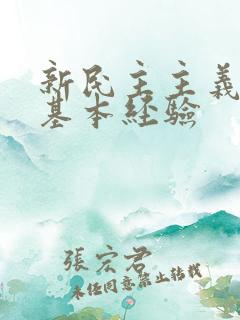 新民主主義
基本經驗
張宏君
未经同意禁止转载